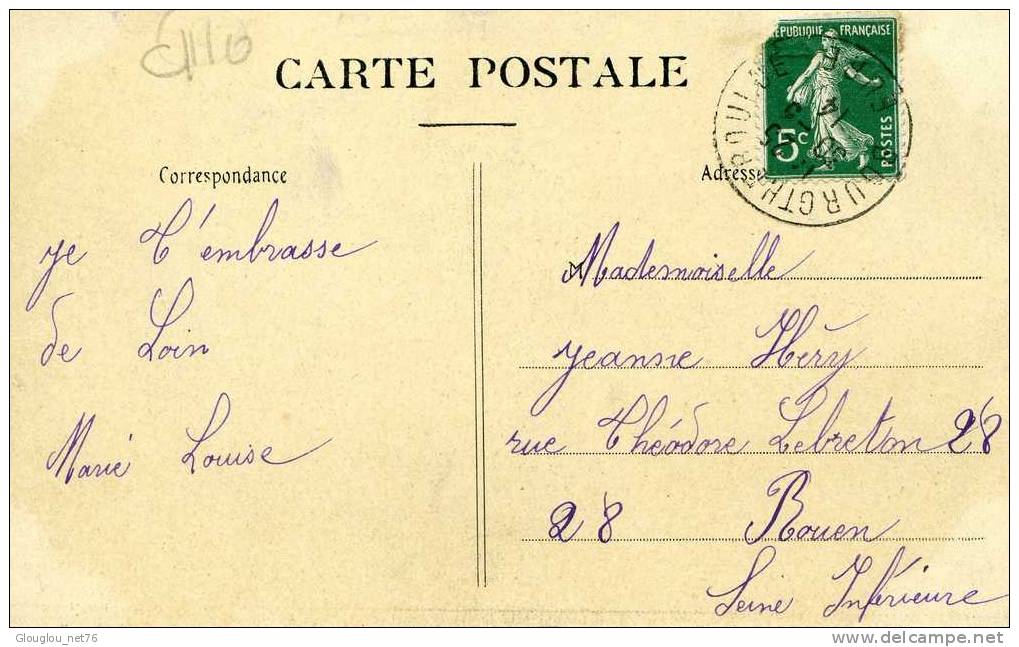 CARTE POSTALE
RÉPUBLIQUE FRANÇAISE
5c
POSTES
Correspondance
Adresse
je t'embrasse
de Loin
Marie Louise
Mademoiselle
Jeanne Héry
rue Théodore Lebreton 28
28 Rouen
Seine Inférieure
Glouglou_net76
www.delcampe.net